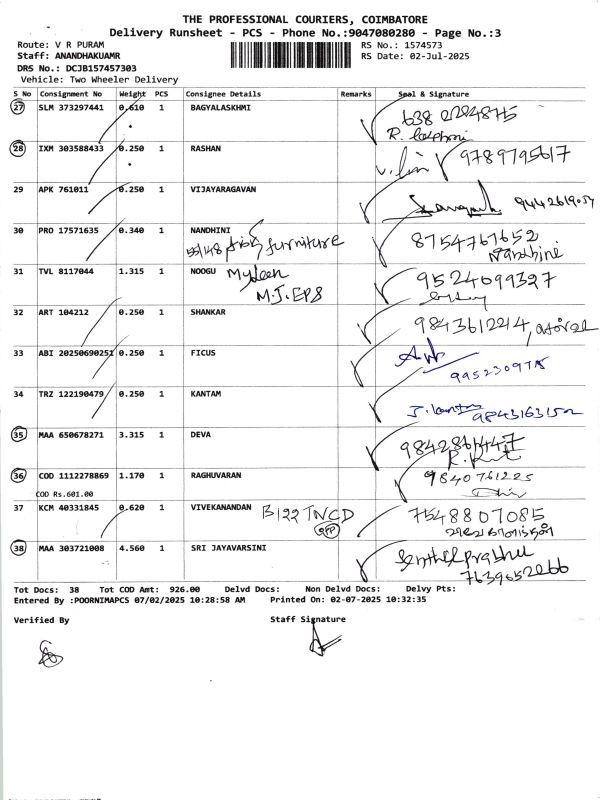 THE PROFESSIONAL COURIERS, COIMBATORE
Delivery Runsheet - PCS - Phone No.:9047080280 - Page No.:3
Route: V R PURAM RS No.: 1574573
Staff: ANANDHAKUAMR RS Date: 02-Jul-2025
DRS No.: DCJB157457303
Vehicle: Two Wheeler Delivery
S No Consignment No Weight PCS Consignee Details Remarks Seal & Signature
27 SLM 373297441 0.610 1 BAGYALASKHMI
R.
28 IXM 303588433 0.250 1 RASHAN 9789795617
29 APK 761011 0.250 1 VIJAYARAGAVAN
30 PRO 17571635 0.340 1 NANDHINI 8754767652
furniture Nandhini
31 TVL 8117044 1.315 1 NOOGU Mydeen 9524099327
M.J.EPS
32 ART 104212 0.250 1 SHANKAR
33 ABI 20250690251 0.250 1 FICUS
34 TRZ 122190479 0.250 1 KANTAM
35 MAA 650678271 3.315 1 DEVA
36 COD 1112278869 1.170 1 RAGHUVARAN 9840761225
COD Rs.601.00
37 KCM 40331845 0.620 1 VIVEKANANDAN B122 TNCD 7548807085
38 MAA 303721008 4.560 1 SRI JAYAVARSINI Senthil prabhu
7639652066
Tot Docs: 38 Tot COD Amt: 926.00 Delvd Docs: Non Delvd Docs: Delvy Pts:
Entered By :POORNIMAPCS 07/02/2025 10:28:58 AM Printed On: 02-07-2025 10:32:35
Verified By Staff Signature